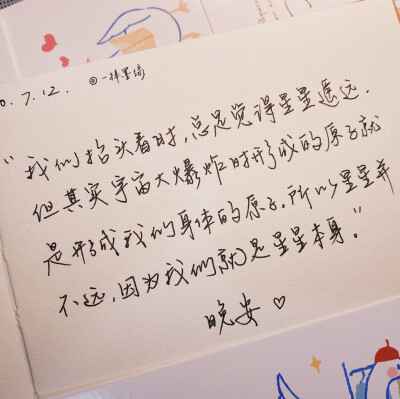 0.7.12. @一捧星缘
“我们抬头看时，总是觉得星星遥远.
但其实宇宙大爆炸时形成的原子就
是形成我们身体的原子.所以星星并
不远，因为我们就是星星本身。”
晚安♡